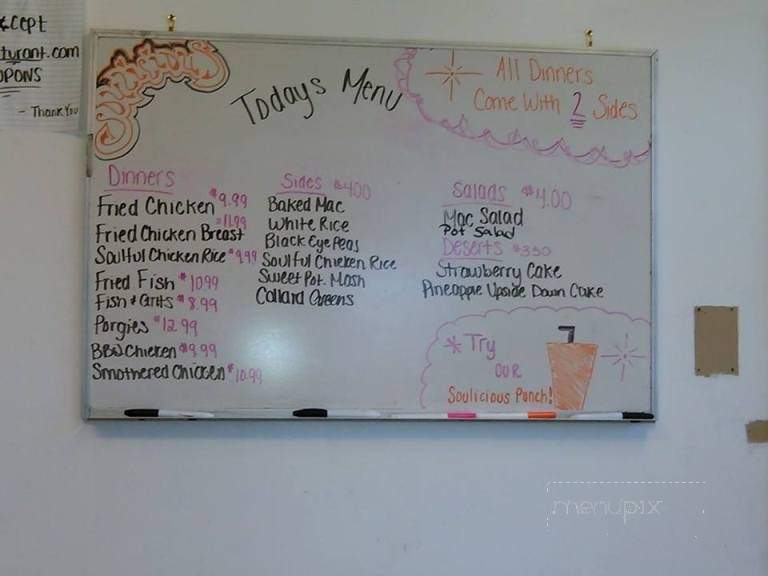 ccept
turant.com
PONS
- Thank You
Todays Menu
All Dinners
Come With 2 Sides
Dinners
Fried Chicken $9.99
Fried Chicken Breast $11.99
Soulful Chicken Rice $9.99
Fried Fish $10.99
Fish & Grits $8.99
Porgies $12.99
BBQ Chicken $9.99
Smothered Chicken $10.99
Sides $4.00
Baked Mac
White Rice
Black Eye Peas
Soulful Chicken Rice
Sweet Pot. Mash
Collard Greens
Salads $4.00
Mac Salad
Pot Salad
Deserts $3.50
Strawberry Cake
Pineapple Upside Down Cake
* Try
OUR
Soulicious Punch!
menupix